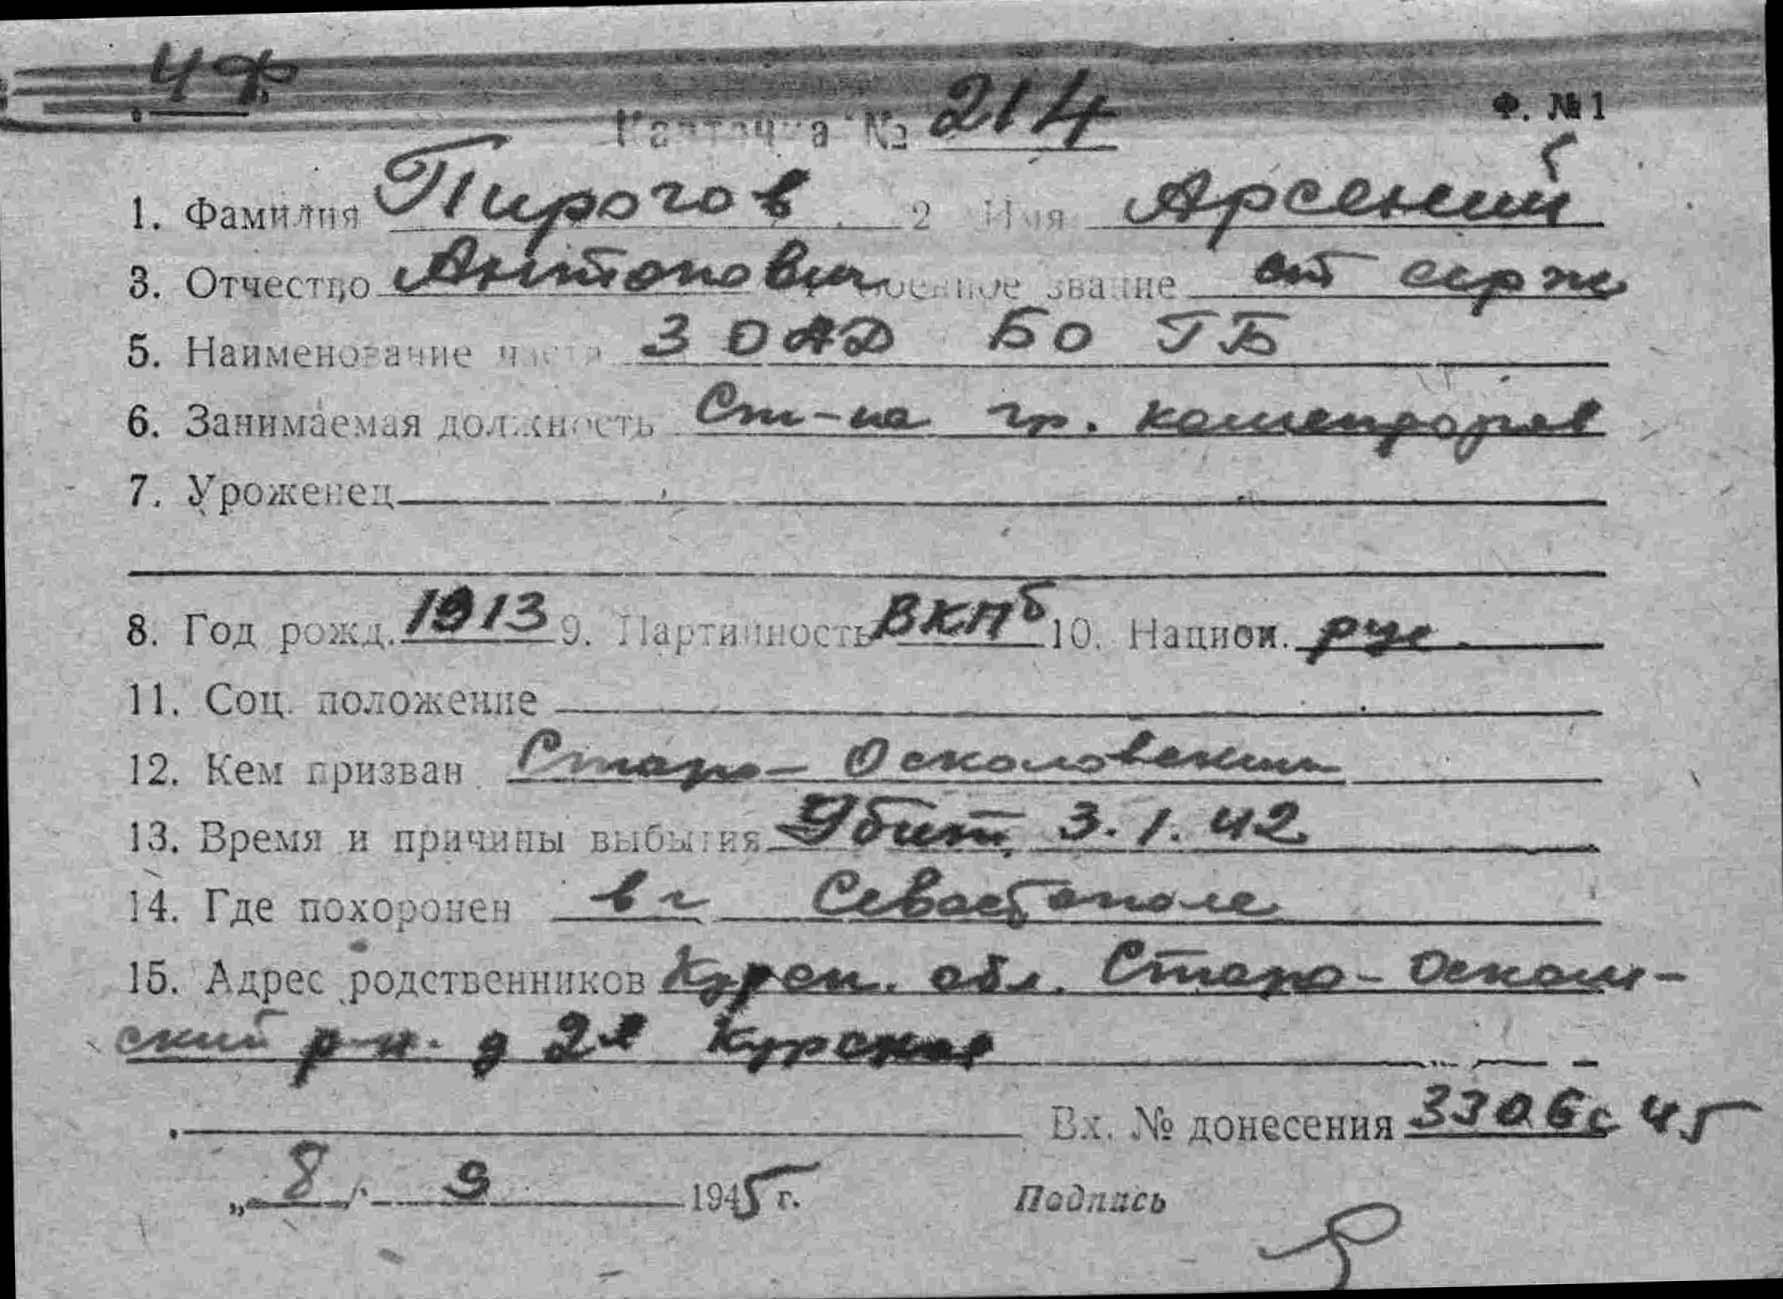 ЧФ
Карточка № 214 Ф. № 1
1. Фамилия Пирогов 2 Имя Арсений
3. Отчество Антонович военное звание ст серж
5. Наименование части 3 ОАД БО ГБ
6. Занимаемая должность Ст-на гр. комендоров
7. Уроженец
8. Год рожд. 1913 9. Партийность ВКПб 10. Национ. рус.
11. Соц. положение
12. Кем призван Старо-Осколовским
13. Время и причины выбытия Убит 3.1.42
14. Где похоронен в г Севастополе
15. Адрес родственников Курск. обл. Старо-Осколь-
ский р-н. д 2я Курская
Вх. № донесения 3306с 45
„8" 9 1945 г. Подпись